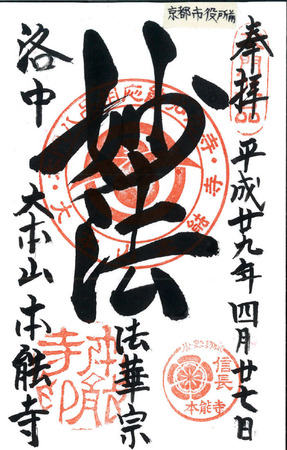 京都市役所前
奉拝
平成廿九年四月廿七日
妙法
法華宗
洛中
大本山本能寺
信長
本能寺